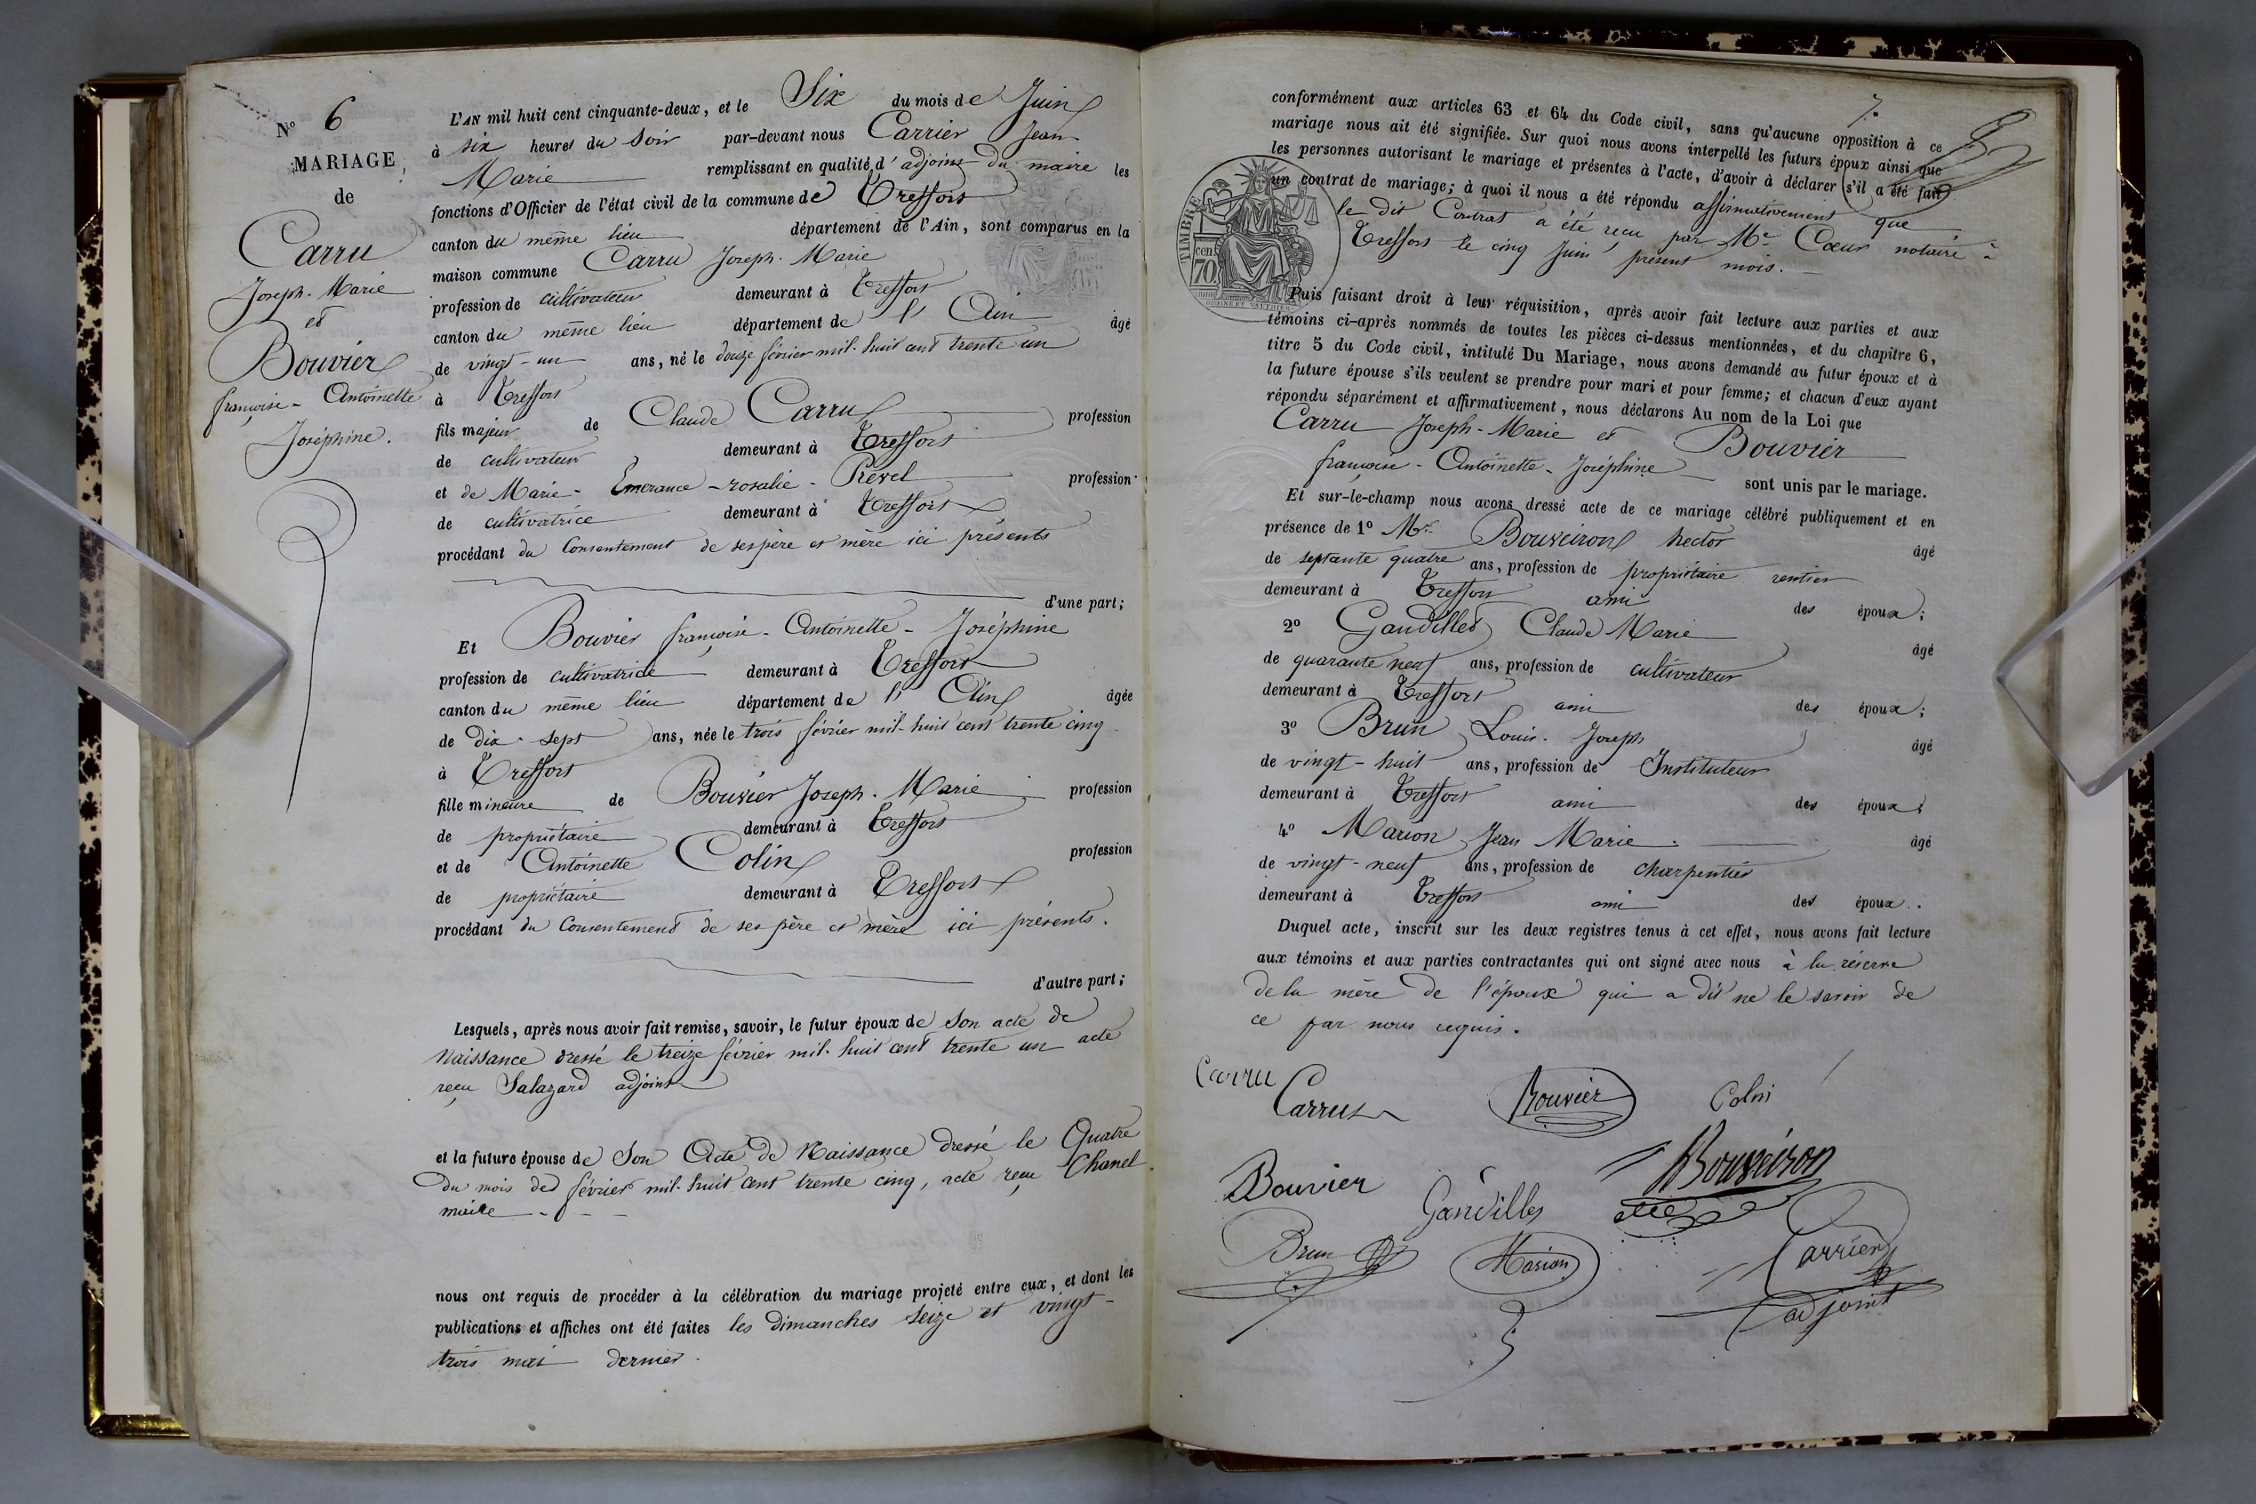 N° 6
MARIAGE
de
Carru
Joseph-Marie
et
Bouvier
françoise-Antoinette
Joséphine.
L'AN mil huit cent cinquante-deux, et le Six du mois de Juin
à six heures du soir par-devant nous Carrier Jean
Marie remplissant en qualité d'adjoint du maire les
fonctions d'Officier de l'état civil de la commune de Treffort
canton du même lieu département de l'Ain, sont comparus en la
maison commune Carru Joseph-Marie
profession de cultivateur demeurant à Treffort
canton du même lieu département de l'Ain âgé
de vingt-un ans, né le douze février mil-huit cent trente un
à Treffort
fils majeur de Claude Carru profession
de cultivateur demeurant à Treffort
et de Marie-Emerance-rosalie-Revel profession
de cultivatrice demeurant à Treffort
procédant du Consentement de ses père et mère ici présents
d'une part;
Et Bouvier françoise-Antoinette-Joséphine
profession de cultivatrice demeurant à Treffort
canton du même lieu département de l'Ain âgée
de dix-sept ans, née le trois février mil-huit cent trente cinq
à Treffort
fille mineure de Bouvier Joseph-Marie profession
de propriétaire demeurant à Treffort
et de Antoinette Colin profession
de propriétaire demeurant à Treffort
procédant du Consentement de ses père et mère ici présents.
d'autre part;
Lesquels, après nous avoir fait remise, savoir, le futur époux de Son acte de
Naissance dressé le treize février mil-huit cent trente un acte
reçu Salazard adjoint
et la future épouse de Son Acte de Naissance dressé le Quatre
du mois de février mil-huit cent trente cinq, acte reçu Chanel
maire
nous ont requis de procéder à la célébration du mariage projeté entre eux, et dont les
publications et affiches ont été faites les dimanches seize et vingt-
trois mai dernier.
7.
conformément aux articles 63 et 64 du Code civil, sans qu'aucune opposition à ce
mariage nous ait été signifiée. Sur quoi nous avons interpellé les futurs époux ainsi que
les personnes autorisant le mariage et présentes à l'acte, d'avoir à déclarer s'il a été fait
un contrat de mariage; à quoi il nous a été répondu affirmativement que
le dit Contrat a été reçu par Me Cœur notaire à
Treffort le cinq Juin présent mois.
TIMBRE
cent
70
Puis faisant droit à leur réquisition, après avoir fait lecture aux parties et aux
témoins ci-après nommés de toutes les pièces ci-dessus mentionnées, et du chapitre 6,
titre 5 du Code civil, intitulé Du Mariage, nous avons demandé au futur époux et à
la future épouse s'ils veulent se prendre pour mari et pour femme; et chacun d'eux ayant
répondu séparément et affirmativement, nous déclarons Au nom de la Loi que
Carru Joseph-Marie et Bouvier
françoise-Antoinette-Joséphine sont unis par le mariage.
Et sur-le-champ nous avons dressé acte de ce mariage célébré publiquement et en
présence de 1° Mr Bouveiron hector âgé
de septante quatre ans, profession de propriétaire rentier
demeurant à Treffort ami des époux;
2° Gandillet Claude Marie âgé
de quarante neuf ans, profession de cultivateur
demeurant à Treffort ami des époux;
3° Brun Louis-Joseph âgé
de vingt-huit ans, profession de Instituteur
demeurant à Treffort ami des époux;
4° Marion Jean Marie. âgé
de vingt-neuf ans, profession de charpentier
demeurant à Treffort ami des époux.
Duquel acte, inscrit sur les deux registres tenus à cet effet, nous avons fait lecture
aux témoins et aux parties contractantes qui ont signé avec nous à la réserve
de la mère de l'époux qui a dit ne le savoir de
ce par nous requis.
Carru
Carru Bouvier Colin
Bouvier Gandillet Bouveiron
Brun Marion Carrier
adjoint